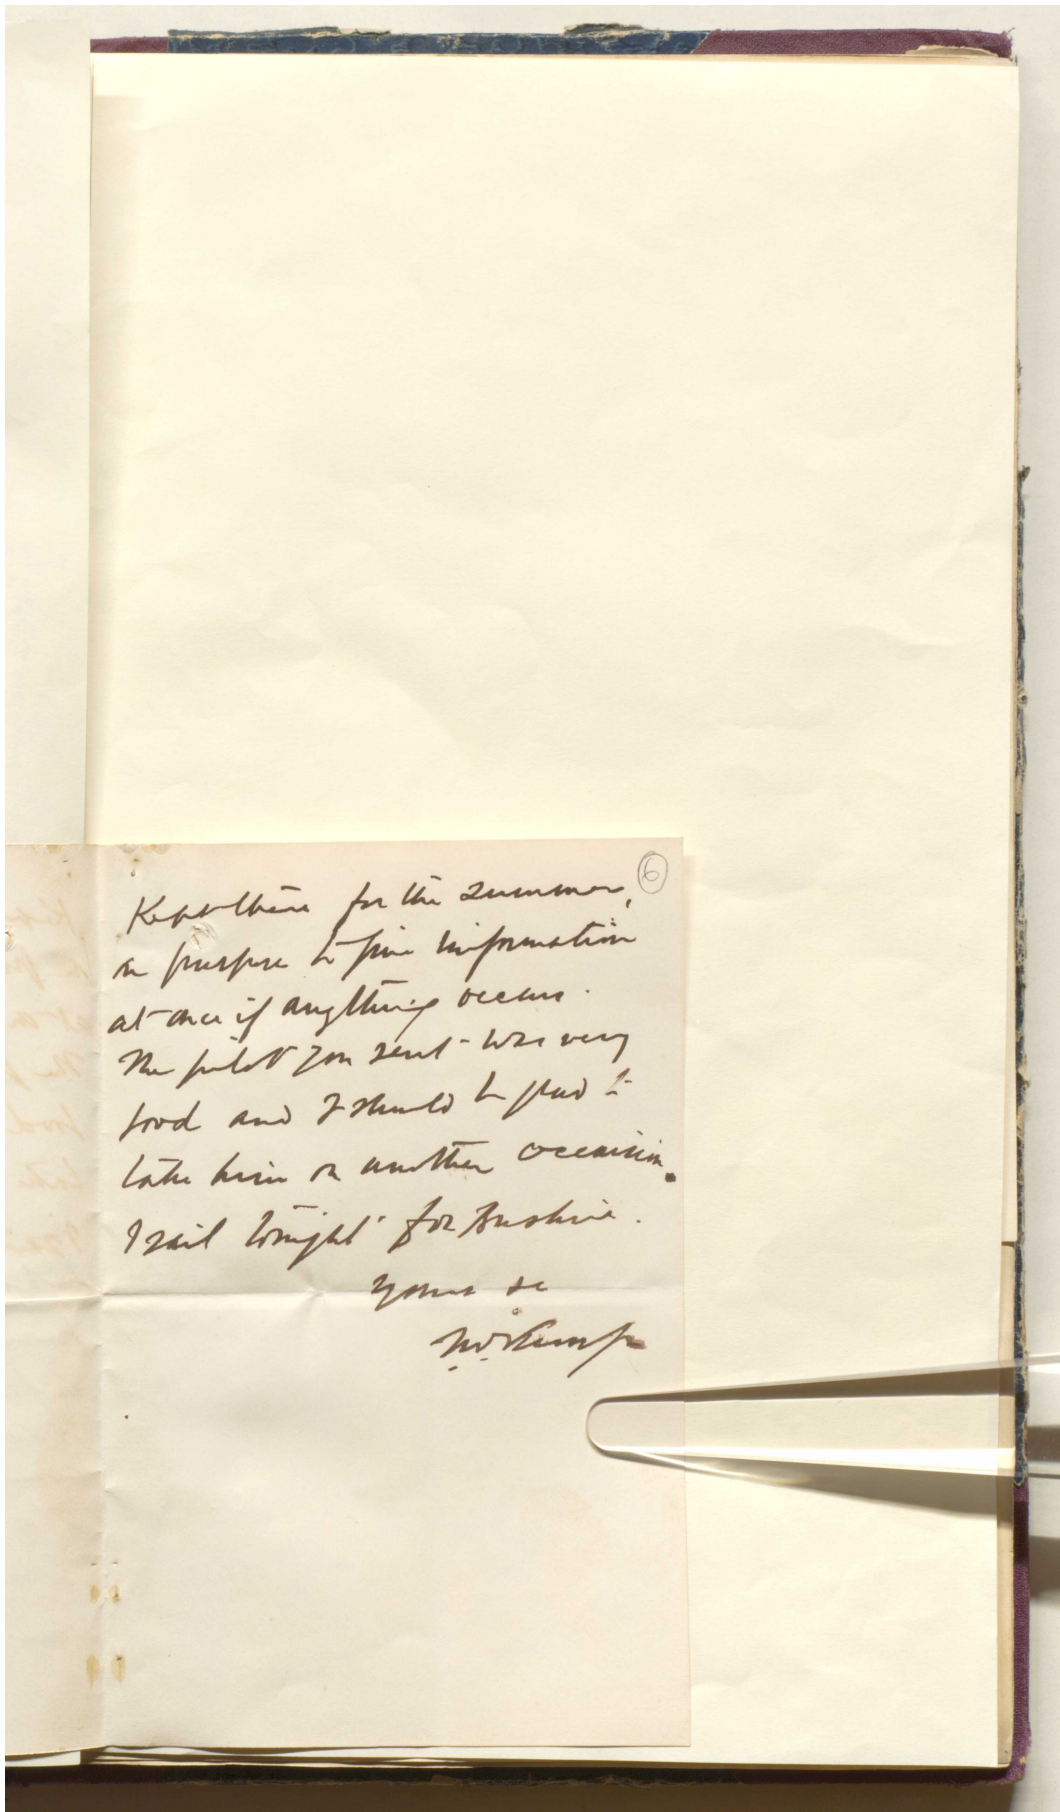 6
Kept there for the summer,
on purpose to give information
at once if anything occurs.
The pilot you sent was very
good and I should be glad to
take him on another occasion.
I sail tonight for Bushire.
Yours &c
Kemp